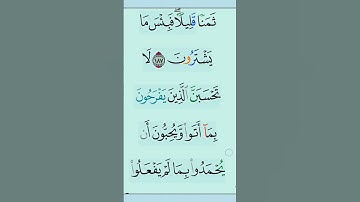 ثَمَنًا قَلِيلًا ۖ فَبِئْسَ مَا
يَشْتَرُونَ ١٨٧ لَا
تَحْسَبَنَّ الَّذِينَ يَفْرَحُونَ
بِمَا أَتَوا وَّيُحِبُّونَ أَن
يُحْمَدُوا بِمَا لَمْ يَفْعَلُوا